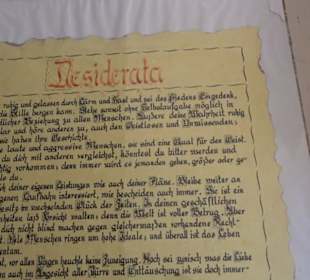 Desiderata
ruhig und gelassen durch Lärm und Hast und sei des Friedens Eingedenk,
die Stille bergen kann. Stehe soweit ohne Selbstaufgabe möglich in
Beziehung zu allen Menschen. Äußere deine Wahrheit ruhig
klar und höre anderen zu, auch den Geistlosen und Unwissenden;
sie haben ihre Geschichte.
laute und aggressive Menschen, sie sind eine Qual für den Geist.
du dich mit anderen vergleichst, könntest du bitter werden und
dir nichtig vorkommen; denn immer wird es jemanden geben, größer oder
als du.
deiner eigenen Leistungen wie auch deiner Pläne. Bleibe weiter an
eigenen Laufbahn interessiert, wie bescheiden auch immer. Sie ist ein
Besitz im wechselnden Glück der Zeiten. In deinen geschäftlichen
laß Vorsicht walten; denn die Welt ist voller Betrug. Aber
dich nicht blind machen gegen gleichermaßen vorhandene
Viele Menschen ringen um hohe Ideale; und überall ist das Leben
vor allen Dingen heuchle keine Zuneigung. Noch sei zynisch was die Liebe
auch im Angesicht aller Dürre und Enttäuschung ist sie doch immer-